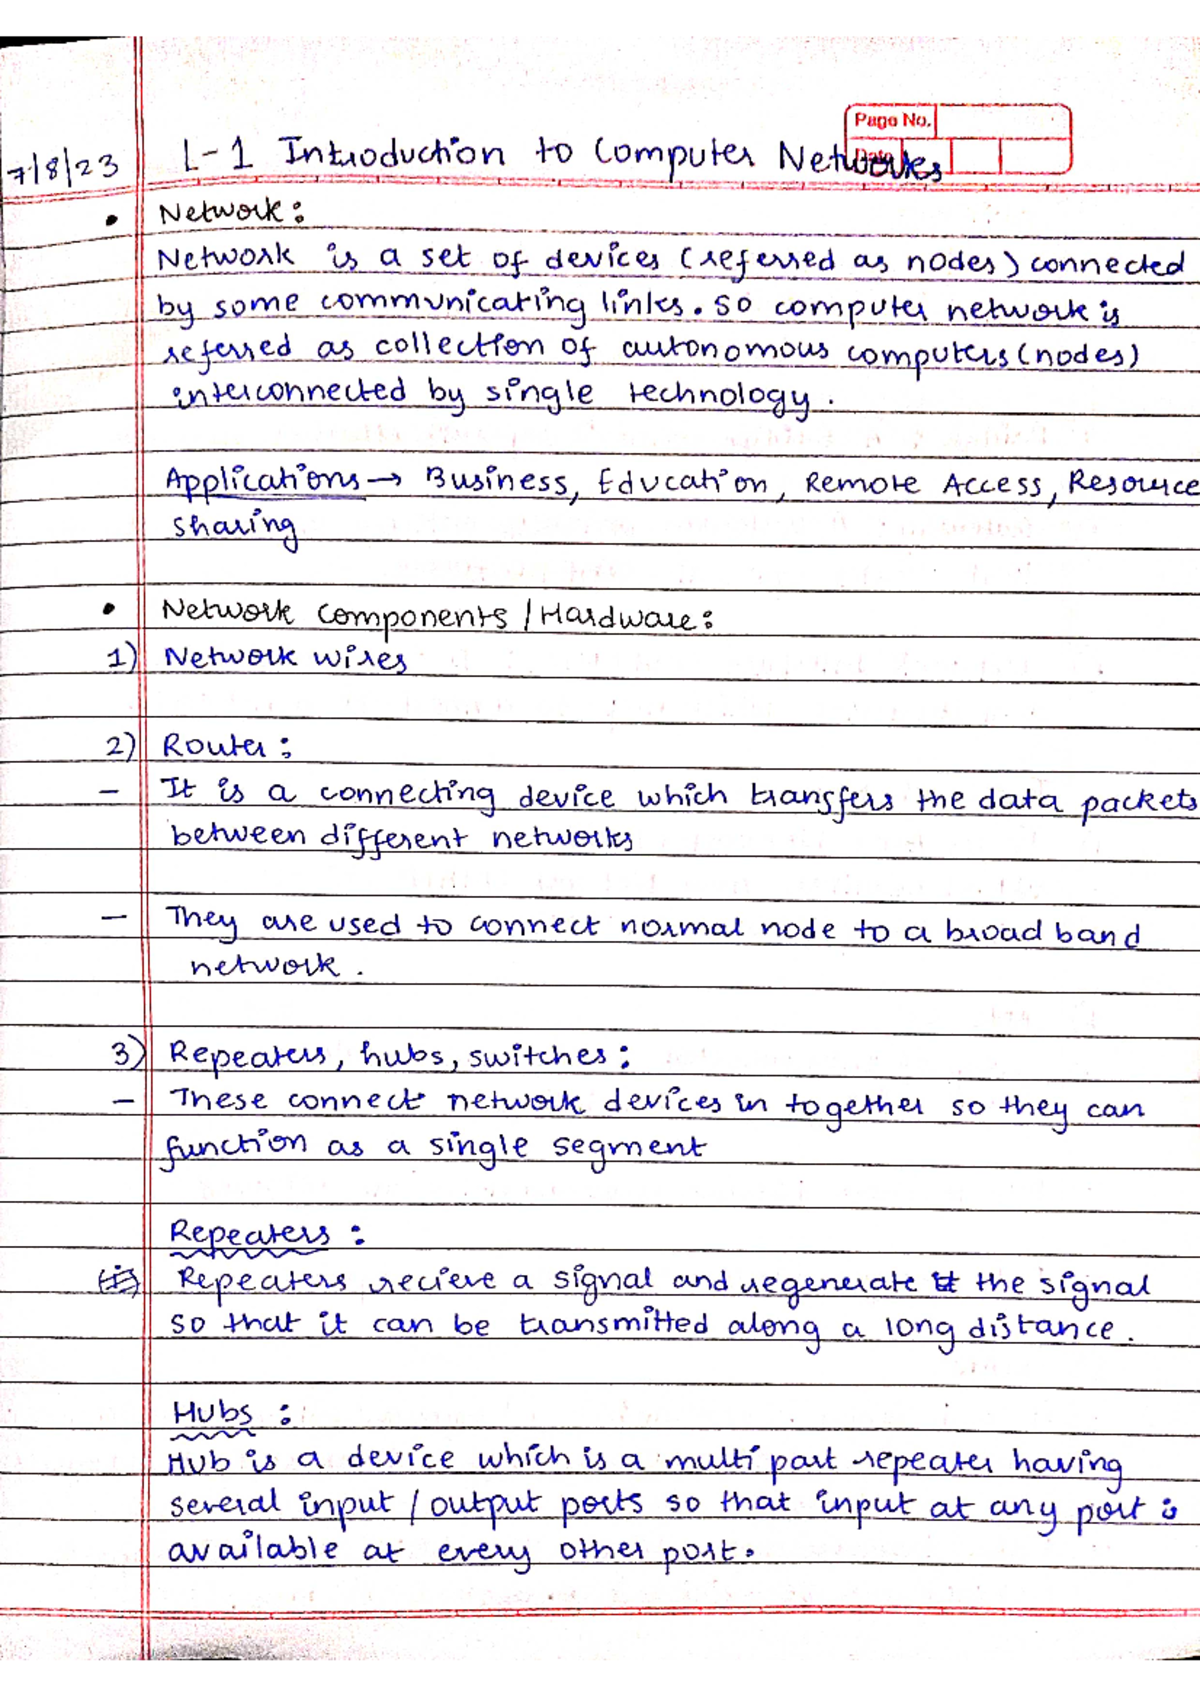 Page No.
Date
7/8/23 L-1 Introduction to Computer Networks
• Network:
Network is a set of devices (referred as nodes) connected
by some communicating links. So computer network is
referred as collection of autonomous computers (nodes)
interconnected by single technology.
Applications → Business, Education, Remote Access, Resource
sharing
• Network components / Hardware:
1) Network wires
2) Router:
- It is a connecting device which transfers the data packets
between different networks
- They are used to connect normal node to a broad band
network.
3) Repeaters, hubs, switches:
- These connect network devices in together so they can
function as a single segment
Repeaters:
Repeaters recieve a signal and regenerate the signal
so that it can be transmitted along a long distance.
Hubs:
Hub is a device which is a multi part repeater having
several input / output ports so that input at any port is
available at every other port.